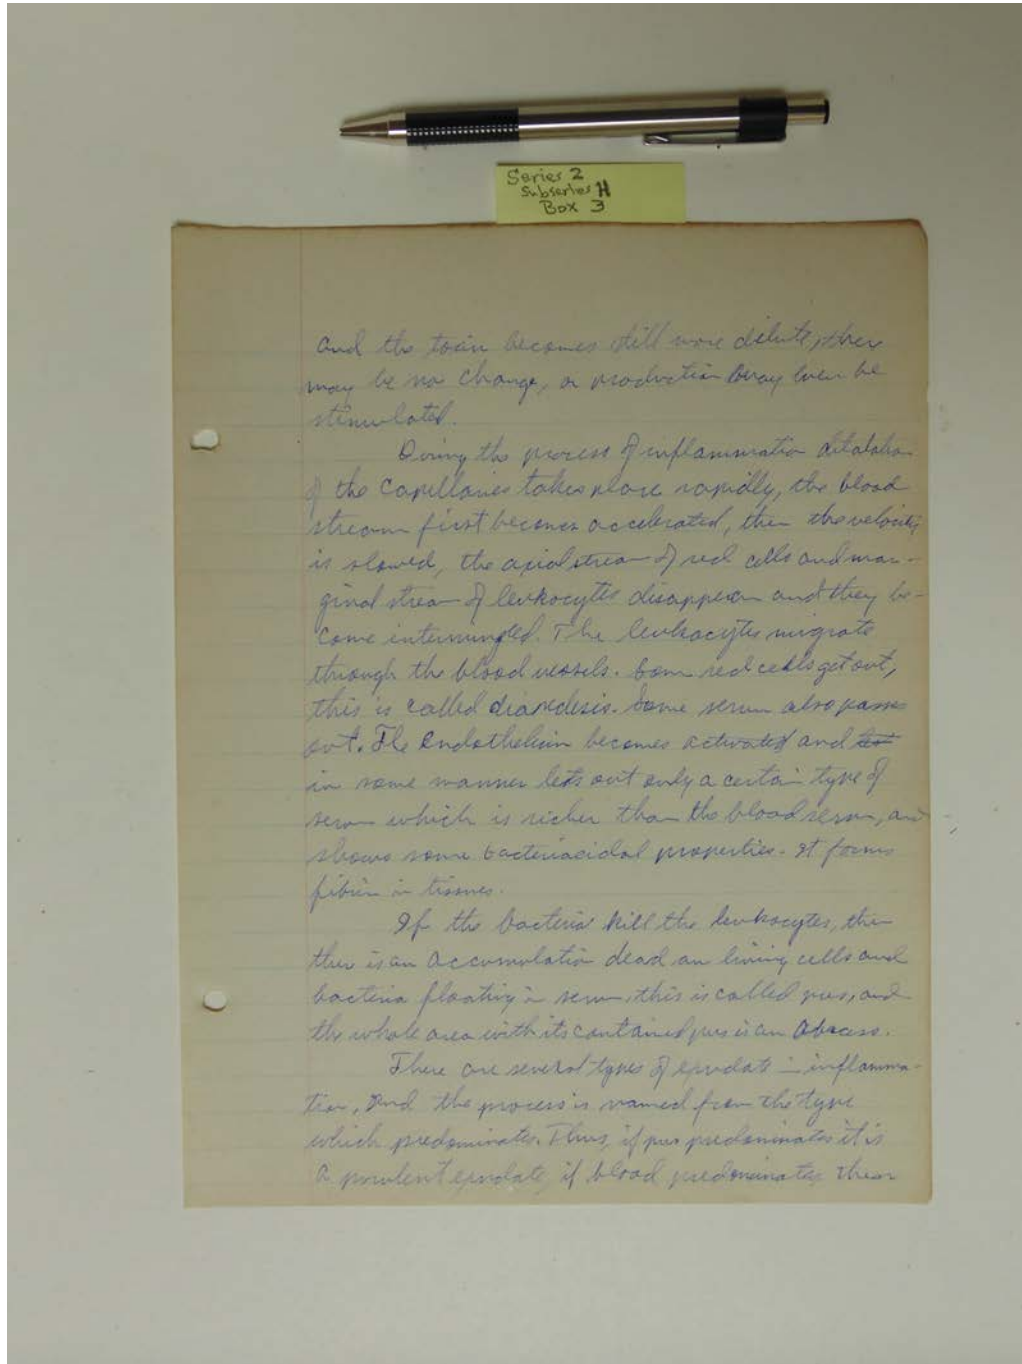 Series 2
Subseries H
Box 3
and the toxin becomes still more dilute, there
may be no change, or production may even be
stimulated.
During the process of inflammation dilatation
of the capillaries takes place rapidly, the blood
stream first becomes accelerated, then the velocity
is slowed, the axial stream of red cells and mar-
ginal stream of leukocytes disappear and they be-
come intermingled. The leukocytes migrate
through the blood vessels. Some red cells get out,
this is called diapedesis. Some serum also passes
out. The Endothelium becomes activated and
in some manner lets out only a certain type of
serum which is richer than the blood serum, and
shows some bacteriacidal properties. It forms
fibrin in tissues.
If the bacteria kill the leukocytes, then
ther is an accumulation dead an living cells and
bacteria floating in serum, this is called pus, and
the whole area with its contained pus is an Abscess.
There are several types of exudate in inflamma-
tion, and the process is named from the type
which predominates. Thus, if pus predominates it is
a purulent exudate, if blood predominates then